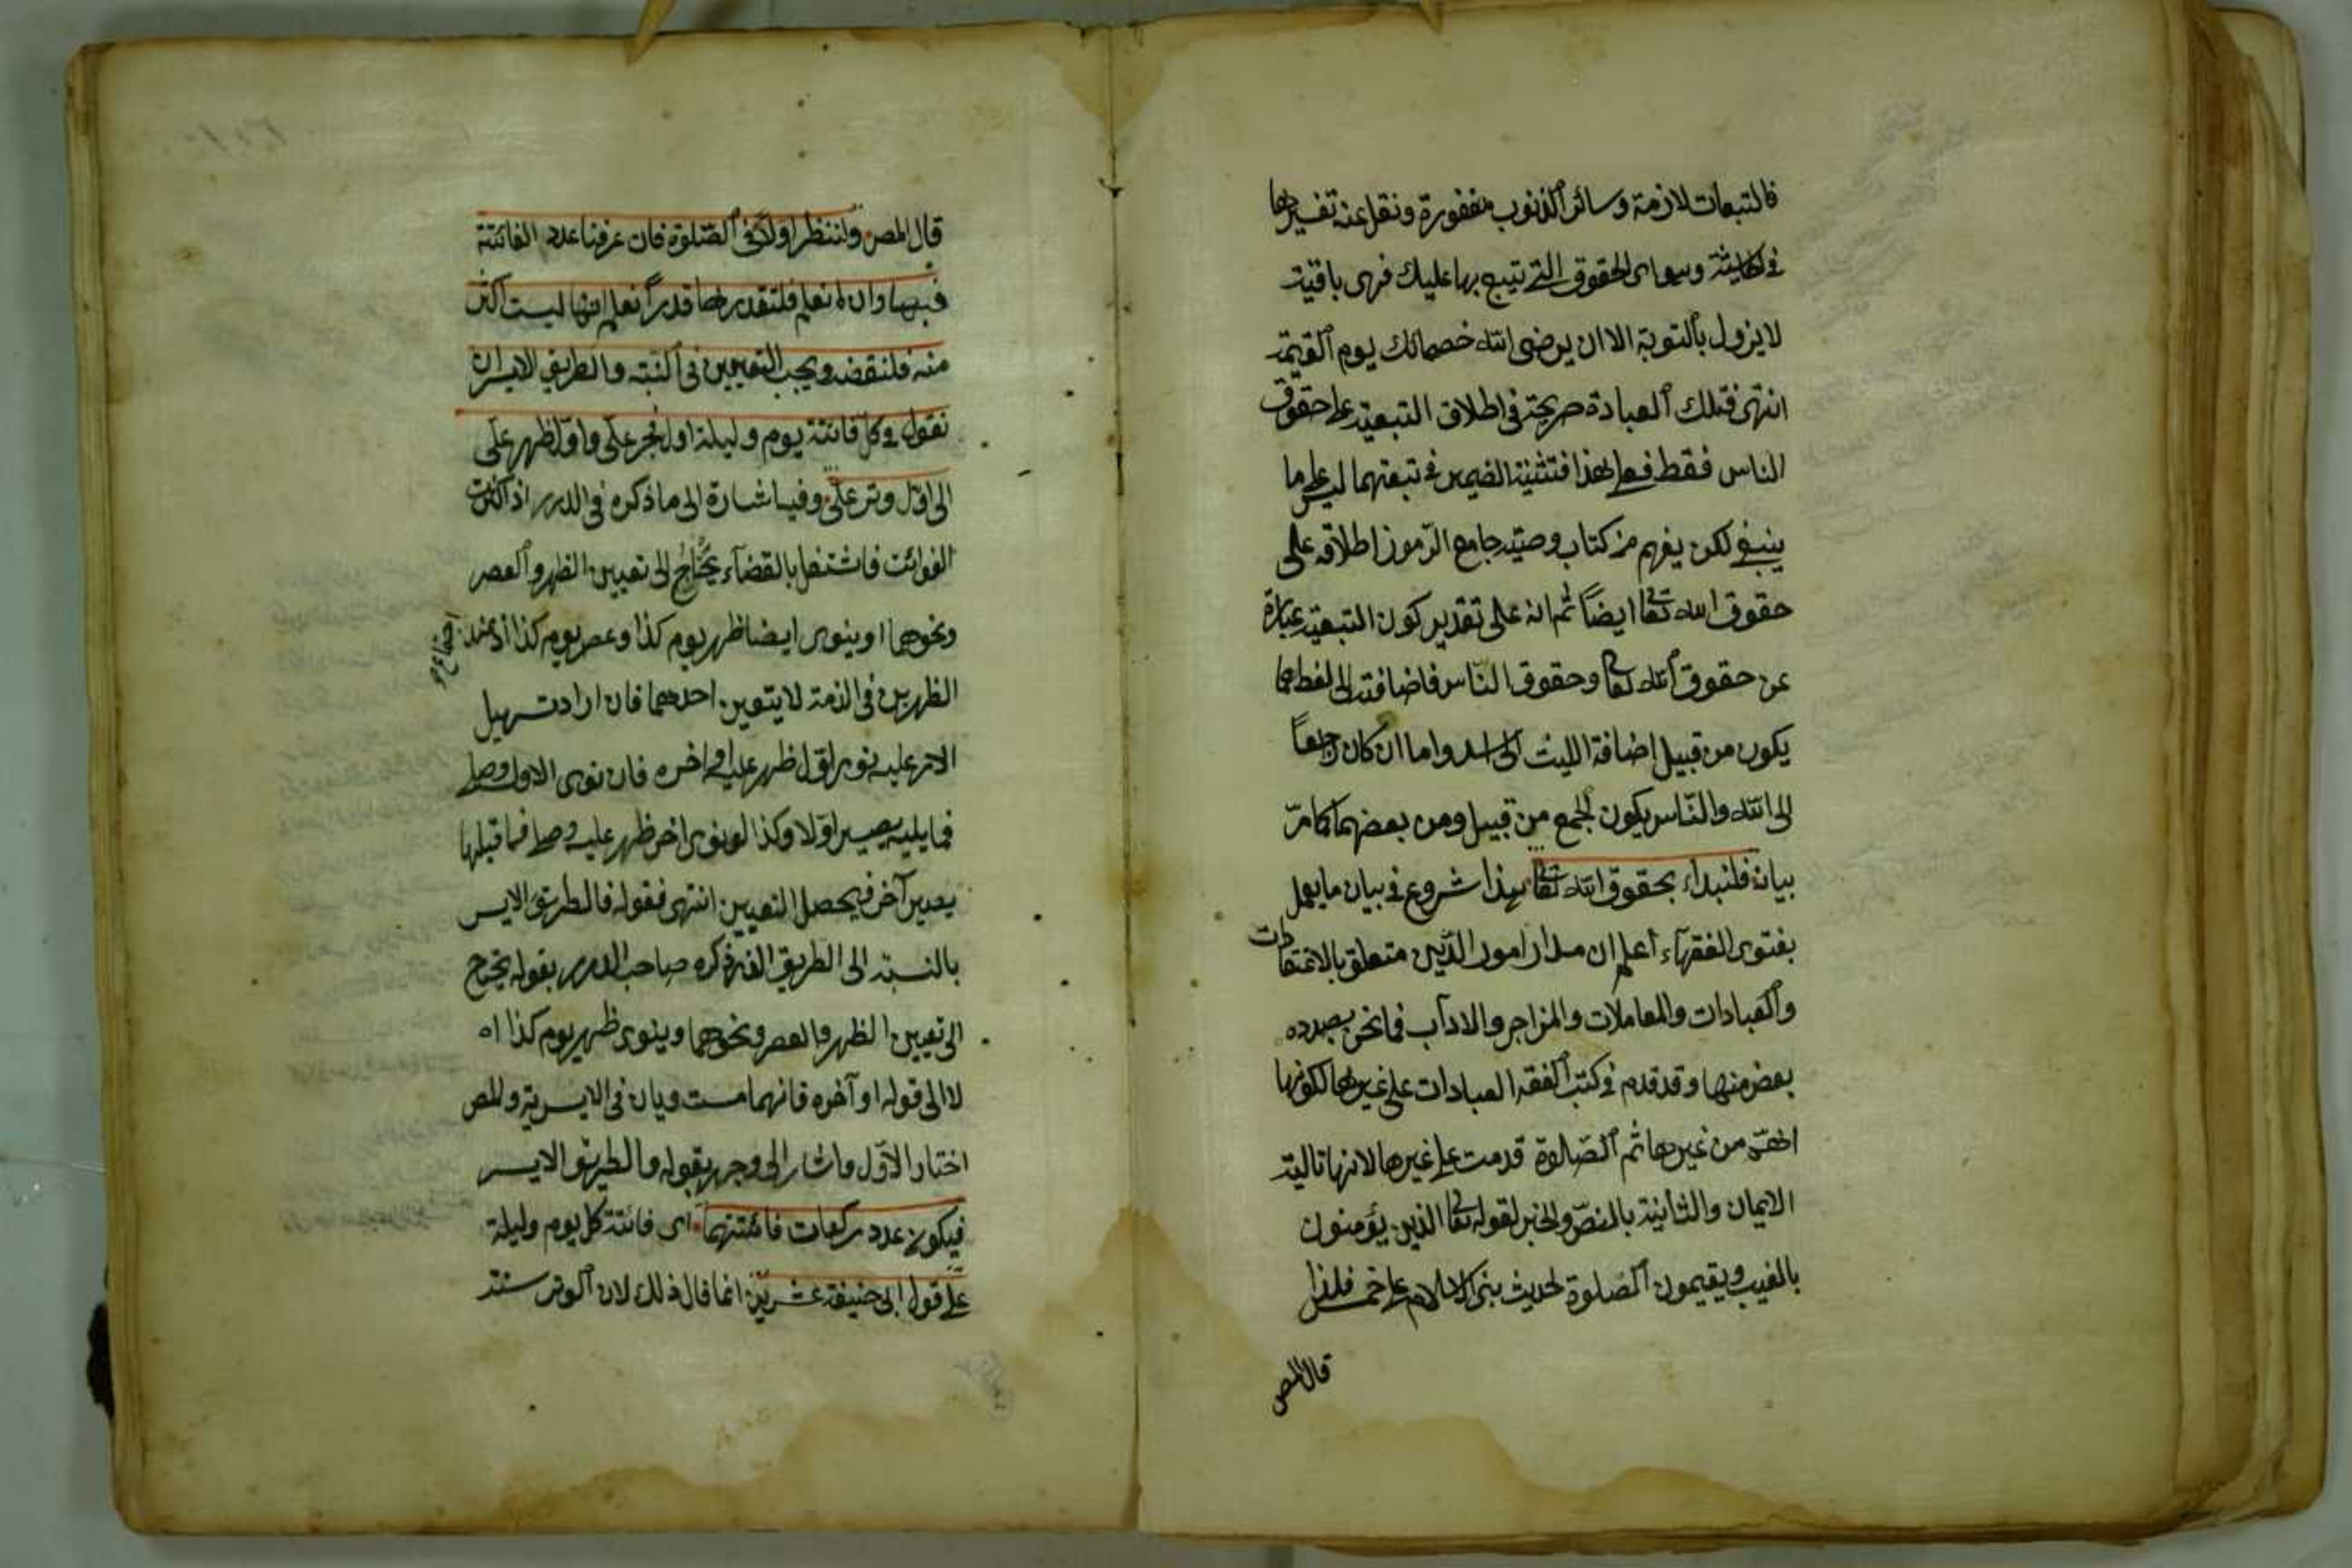 فالتبعات لازمة وسائر الذنوب مغفورة ونقل عنه تفسيرها
في وسواى الحقوق التي تتبع بها عليك فهى باقية
لا يزول بالتوبة الا ان يرضى الله خصمائك يوم القيمة
انتهى فتلك العبادة صريحة في اطلاق التبعية على حقوق
الناس فقط فعلى هذا فتثنية الضمير في تبعتهما ليس على ما
ينبغي لكن يفهم من كتاب وصية جامع الرموز اطلاقه على
حقوق الله تعا ايضاً ثم انه على تقدير كون التبعية عبارة
عن حقوق الله تعا وحقوق الناس فاضافته الى لفظهما
يكون من قبيل اضافة الليث الى اسد واما ان كان راجعاً
الى الله والناس يكون الجمع من قبيل ومن بعضهما كما مرّ
بيانه فلنبداء بحقوق الله تعا هذا شروع في بيان ما يعمل
بفتوى الفقهاء اعلم ان مدار امور الدين متعلق بالاعتقادات
والعبادات والمعاملات والمزاجر والاداب فما نحن بصدده
بعض منها وقد قدم في كتب الفقه العبادات على غيرها لكونها
اهمّ من غيرها ثم الصلوة قدمت على غيرها لانها تالية
الايمان والثانية بالنصّ والخبر لقوله تعا الذين يؤمنون
بالغيب ويقيمون الصلوة لحديث بنى الاسلام على خمس فلذا
قال المص
قال المص ولننظر اولاً في الصلوة فان عرفنا عدد الفائتة
فبها وان لم نعلم فلتقدير لها قدراً نعلم انها ليست اكثر
منه فلنقضه ويجب التعيين في النية والطريق الايسر ان
نقول في كل فائتة يوم وليلة اول فجر علّي واول ظهر علّي
الى اوّل وتر علّي وفيه اشارة الى ما ذكره في الدرر اذا كثرت
الفوائت فاشتغل بالقضاء يحتاج الى تعيين الظهر والعصر
ونحوهما اوينوى ايضا ظهر يوم كذا وعصر يوم كذا اذ عند اجتماع
الظهرين في الذمة لا يتعين احدهما فان اراد تسهيل
الامر عليه نوى اوّل ظهر عليه او اخره فان نوى الاول وصلى
فما يليه يصير اوّلا وكذا لو نوى اخر ظهر عليه وصلى فما قبلها
يصير آخر فيحصل التعيين انتهى فقوله فالطريق الايسر
بالنسبة الى الطريق الذي ذكره صاحب الدرر بقوله يحتاج
الى تعيين الظهر والعصر ونحوهما وينوى ظهر يوم كذا اه
لا الى قوله او آخره فانهما مستويان في الايسرية والمص
اختار الاوّل واشار الى وجهه بقوله والطريق الايسر
فيكون عدد ركعات فائتتهما اى فائتة كل يوم وليلة
على قول ابى حنيفة عشرين انما قال ذلك لان الوتر سنة